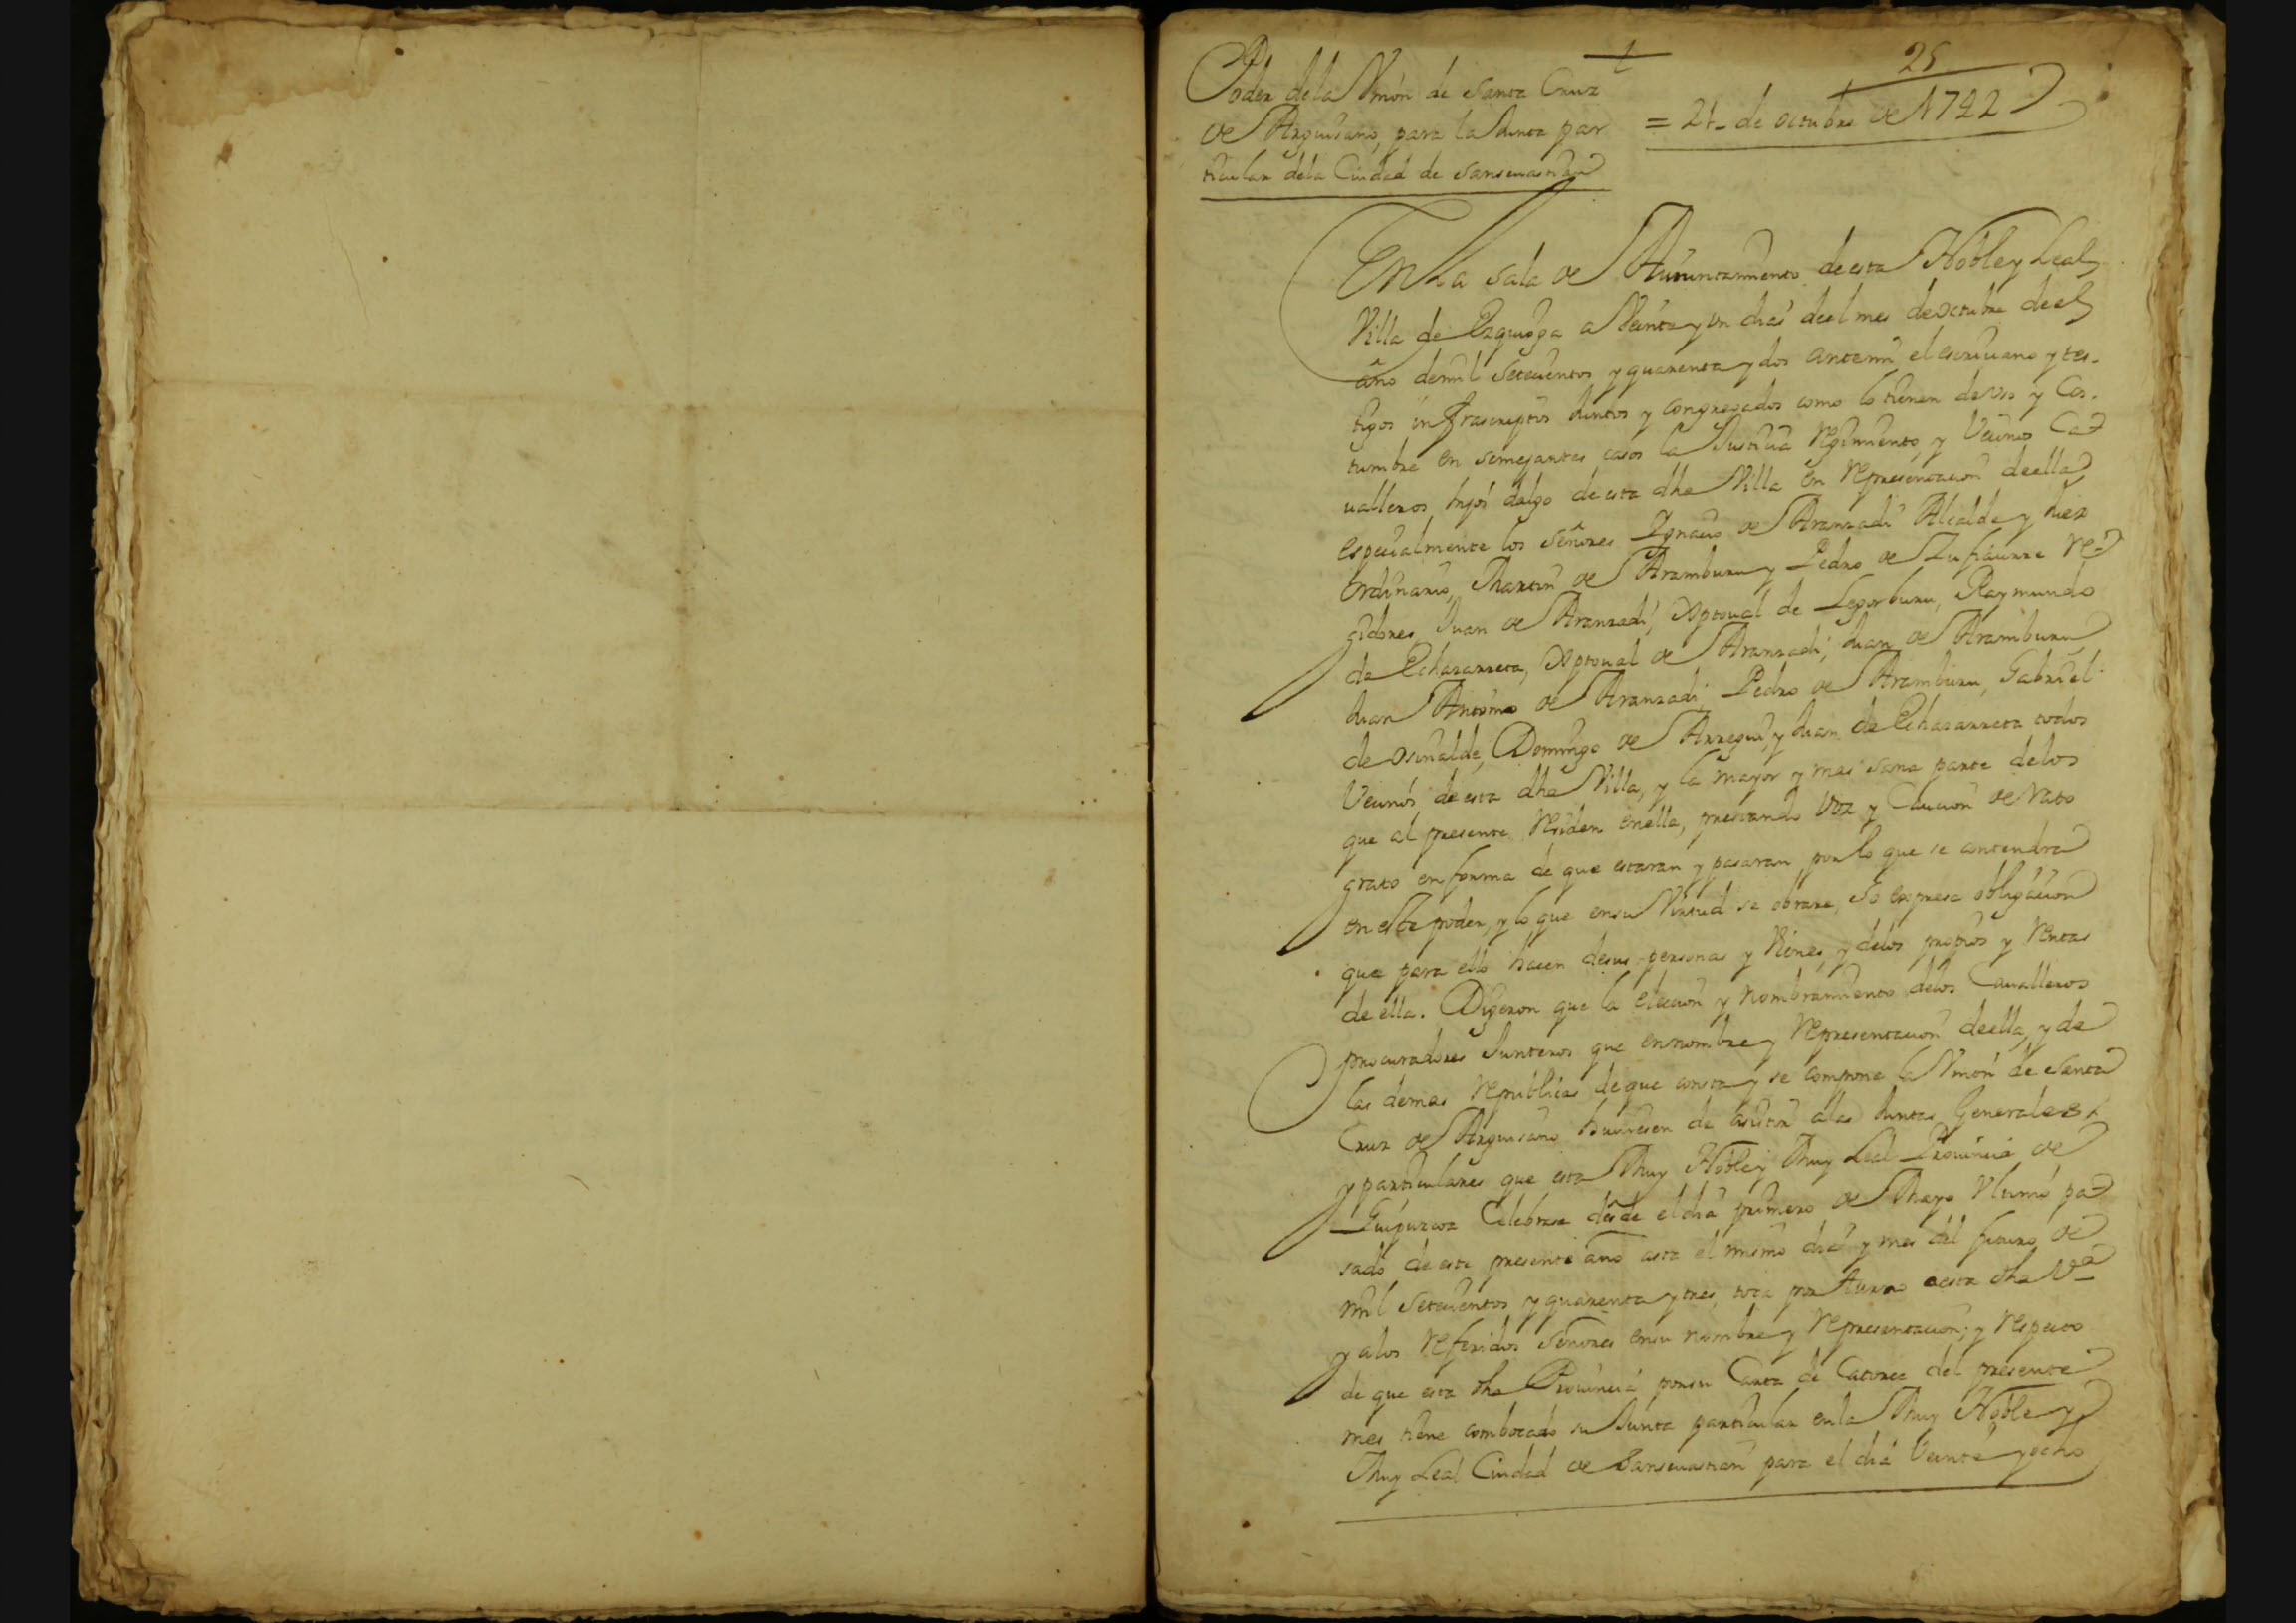 25
Poder dela Vnión de Santa Cruz
de Arguisano, para la Junta par
ticular dela Ciudad de Sansevastian
= 21 de octubre de 1742
En la sala de Aiuntamiento de esta Noble y Leal
Villa de Ezquioga a Veinte y un dias del mes de octubre de el
año de mil setecientos y quarenta y dos ante mi el escriuano y tes-
tigos infrascriptos Juntos y congregados como lo tienen de vso y Cos-
tumbre en semejantes casos la Justicia regimiento, y Vecinos Ca
ualleros hijos dalgo de esta dha Villa en representacion de ella
especialmente los señores Ignacio de Aranzadi Alcalde y Juez
ordinario, Martin de Aramburu y Pedro de Lufiaurre re
gidores, Juan de Aranzadi, Xptoual de Legorburu, Raymundo
de Echazarreta, Xptoual de Aranzadi, Juan de Aramburu
Juan Antonio de Aranzadi, Pedro de Aramburu, Gabriel
de Osinalde, Domingo de Arregui, y Juan de Echazarreta todos
Vecinos de esta dha Villa, y la mayor y mas sana parte delos
que al presente residen en ella, prestando Voz y Caucion de rato
grato en forma de que estaran y pasaran por lo que se contendra
en este poder, y lo que en su Virtud se obrare, so expresa obligacion
que para ello hacen de sus personas y Vienes, y delos propios y rentas
de ella. Digeron que la eleccion y nombramiento delos Caualleros
procuradores Junteros que en nombre y representacion de ella, y de
las demas republicas de que consta y se compone la Vnión de Santa
Cruz de Arguisano huuiesen de asistir alas Juntas Generales
y particulares que esta Muy Noble y Muy Leal Prouincia de
Guipuzcoa Celebrase desde el dia primero de Mayo Vltimo pa
sado de este presente año asta el mismo dia y mes del futuro de
mil setecientos y quarenta y tres, toca por turno a esta dha Vª
y alos referidos señores en su nombre y representacion; y respecto
de que esta dha Prouincia por su Carta de Catorce del presente
mes tiene combocado su Junta particular en la Muy Noble y
Muy Leal Ciudad de Sansevastian para el dia Veinte y ocho